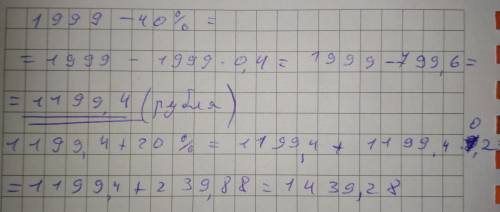 1999 - 40% =
= 1999 - 1999·0,4 = 1999 - 799,6 =
= 1199,4 (рубля)
1199,4 + 20% = 1199,4 + 1199,4·0,2=
= 1199,4 + 239,88 = 1439,28